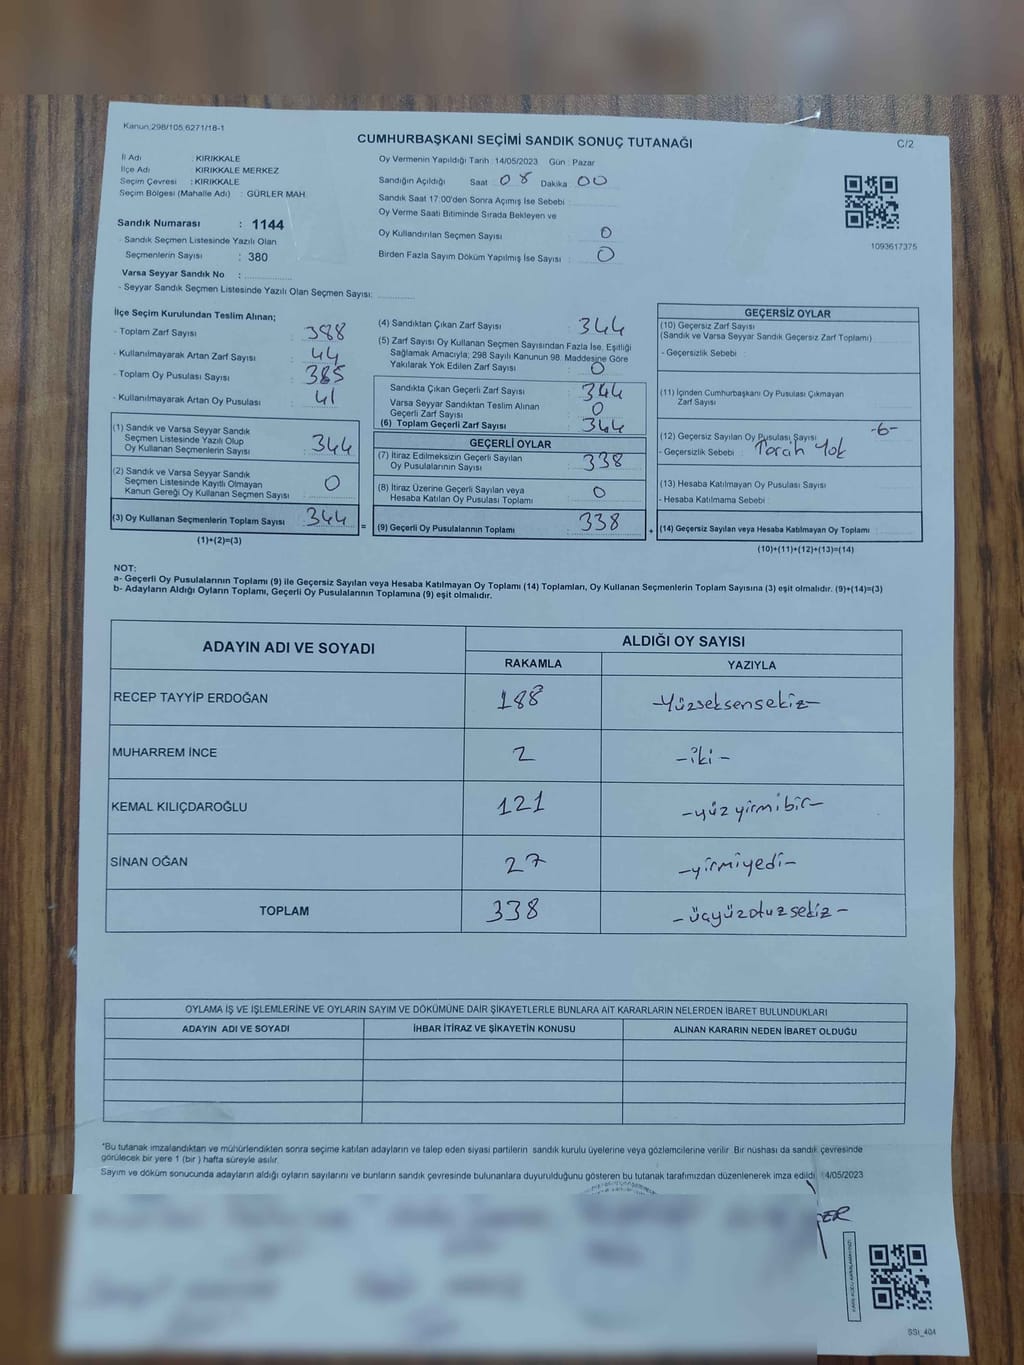 Kanun:298/105,6271/18-1
CUMHURBAŞKANI SEÇİMİ SANDIK SONUÇ TUTANAĞI
C/2
İl Adı : KIRIKKALE
İlçe Adı : KIRIKKALE MERKEZ
Seçim Çevresi : KIRIKKALE
Seçim Bölgesi (Mahalle Adı) : GÜRLER MAH.
Sandık Numarası : 1144
- Sandık Seçmen Listesinde Yazılı Olan
Seçmenlerin Sayısı : 380
Varsa Seyyar Sandık No :
- Seyyar Sandık Seçmen Listesinde Yazılı Olan Seçmen Sayısı:
Oy Vermenin Yapıldığı Tarih : 14/05/2023 Gün : Pazar
Sandığın Açıldığı Saat 08 Dakika 00
Sandık Saat 17:00'den Sonra Açımış İse Sebebi :
Oy Verme Saati Bitiminde Sırada Bekleyen ve
Oy Kullandırılan Seçmen Sayısı : 0
Birden Fazla Sayım Döküm Yapılmış İse Sayısı : 0
1093617375
İlçe Seçim Kurulundan Teslim Alınan;
- Toplam Zarf Sayısı : 388
- Kullanılmayarak Artan Zarf Sayısı : 44
- Toplam Oy Pusulası Sayısı : 385
- Kullanılmayarak Artan Oy Pusulası : 41
(1) Sandık ve Varsa Seyyar Sandık
Seçmen Listesinde Yazılı Olup
Oy Kullanan Seçmenlerin Sayısı : 344
(2) Sandık ve Varsa Seyyar Sandık
Seçmen Listesinde Kayıtlı Olmayan
Kanun Gereği Oy Kullanan Seçmen Sayısı : 0
(3) Oy Kullanan Seçmenlerin Toplam Sayısı : 344 =
(1)+(2)=(3)
(4) Sandıktan Çıkan Zarf Sayısı : 344
(5) Zarf Sayısı Oy Kullanan Seçmen Sayısından Fazla İse, Eşitliği
Sağlamak Amacıyla; 298 Sayılı Kanunun 98. Maddesine Göre
Yakılarak Yok Edilen Zarf Sayısı : 0
Sandıkta Çıkan Geçerli Zarf Sayısı : 344
Varsa Seyyar Sandıktan Teslim Alınan
Geçerli Zarf Sayısı : 0
(6) Toplam Geçerli Zarf Sayısı : 344
GEÇERLİ OYLAR
(7) İtiraz Edilmeksizin Geçerli Sayılan
Oy Pusulalarının Sayısı : 338
(8) İtiraz Üzerine Geçerli Sayılan veya
Hesaba Katılan Oy Pusulası Toplamı : 0
(9) Geçerli Oy Pusulalarının Toplamı : 338 +
GEÇERSİZ OYLAR
(10) Geçersiz Zarf Sayısı
(Sandık ve Varsa Seyyar Sandık Geçersiz Zarf Toplamı)
- Geçersizlik Sebebi :
(11) İçinden Cumhurbaşkanı Oy Pusulası Çıkmayan
Zarf Sayısı
(12) Geçersiz Sayılan Oy Pusulası Sayısı -6-
- Geçersizlik Sebebi : Tercih Yok
(13) Hesaba Katılmayan Oy Pusulası Sayısı
- Hesaba Katılmama Sebebi :
(14) Geçersiz Sayılan veya Hesaba Katılmayan Oy Toplamı :
(10)+(11)+(12)+(13)=(14)
NOT:
a- Geçerli Oy Pusulalarının Toplamı (9) ile Geçersiz Sayılan veya Hesaba Katılmayan Oy Toplamı (14) Toplamları, Oy Kullanan Seçmenlerin Toplam Sayısına (3) eşit olmalıdır. (9)+(14)=(3)
b- Adayların Aldığı Oyların Toplamı, Geçerli Oy Pusulalarının Toplamına (9) eşit olmalıdır.
ADAYIN ADI VE SOYADI
ALDIĞI OY SAYISI
RAKAMLA YAZIYLA
RECEP TAYYİP ERDOĞAN 188 -Yüzseksensekiz-
MUHARREM İNCE 2 -iki-
KEMAL KILIÇDAROĞLU 121 -yüzyirmibir-
SİNAN OĞAN 27 -yirmiyedi-
TOPLAM 338 -üçyüzotuzsekiz-
OYLAMA İŞ VE İŞLEMLERİNE VE OYLARIN SAYIM VE DÖKÜMÜNE DAİR ŞİKAYETLERLE BUNLARA AİT KARARLARIN NELERDEN İBARET BULUNDUKLARI
ADAYIN ADI VE SOYADI İHBAR İTİRAZ VE ŞİKAYETİN KONUSU ALINAN KARARIN NEDEN İBARET OLDUĞU
*Bu tutanak imzalandıktan ve mühürlendikten sonra seçime katılan adayların ve talep eden siyasi partilerin sandık kurulu üyelerine veya gözlemcilerine verilir. Bir nüshası da sandık çevresinde
görülecek bir yere 1 (bir) hafta süreyle asılır.
Sayım ve döküm sonucunda adayların aldığı oyların sayılarını ve bunların sandık çevresinde bulunanlara duyurulduğunu gösteren bu tutanak tarafımızdan düzenlenerek imza edildi. 14/05/2023
SSt_404